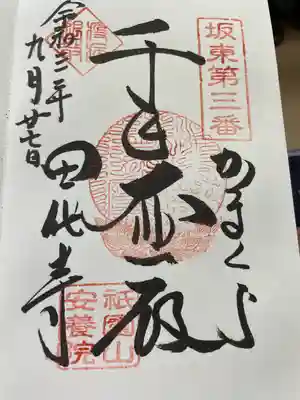 坂東第三番
かまくら
千手大悲殿
令和三年
九月廿七日
田代寺
祇園山
安養院